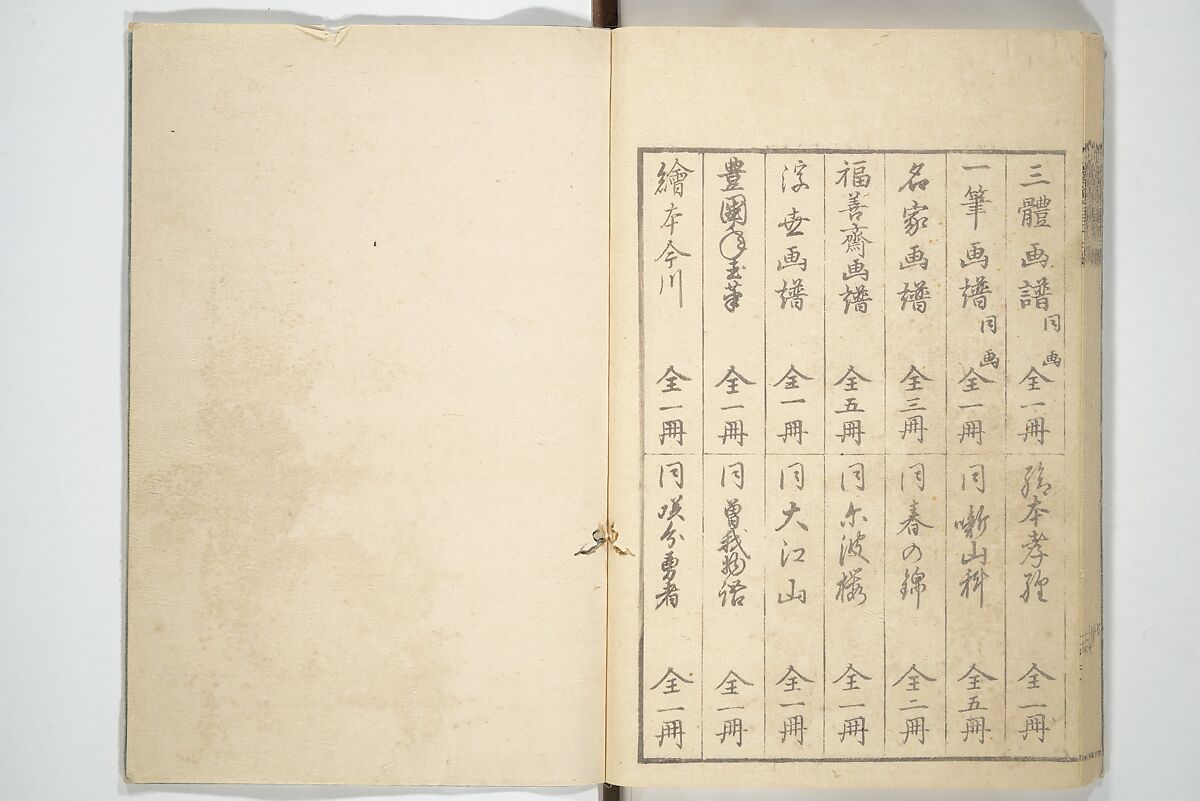 三體画譜 同画 全一冊
一筆画譜 同画 全一冊
名家画譜 全三冊
福善齋画譜 全五冊
浮世画譜 全一冊
豊國年玉筆 全一冊
繪本今川 全一冊
繪本孝経 全一冊
同 噺山科 全五冊
同 春の錦 全二冊
同 尓波桜 全一冊
同 大江山 全一冊
同 曽我物語 全一冊
同 咲分勇者 全一冊